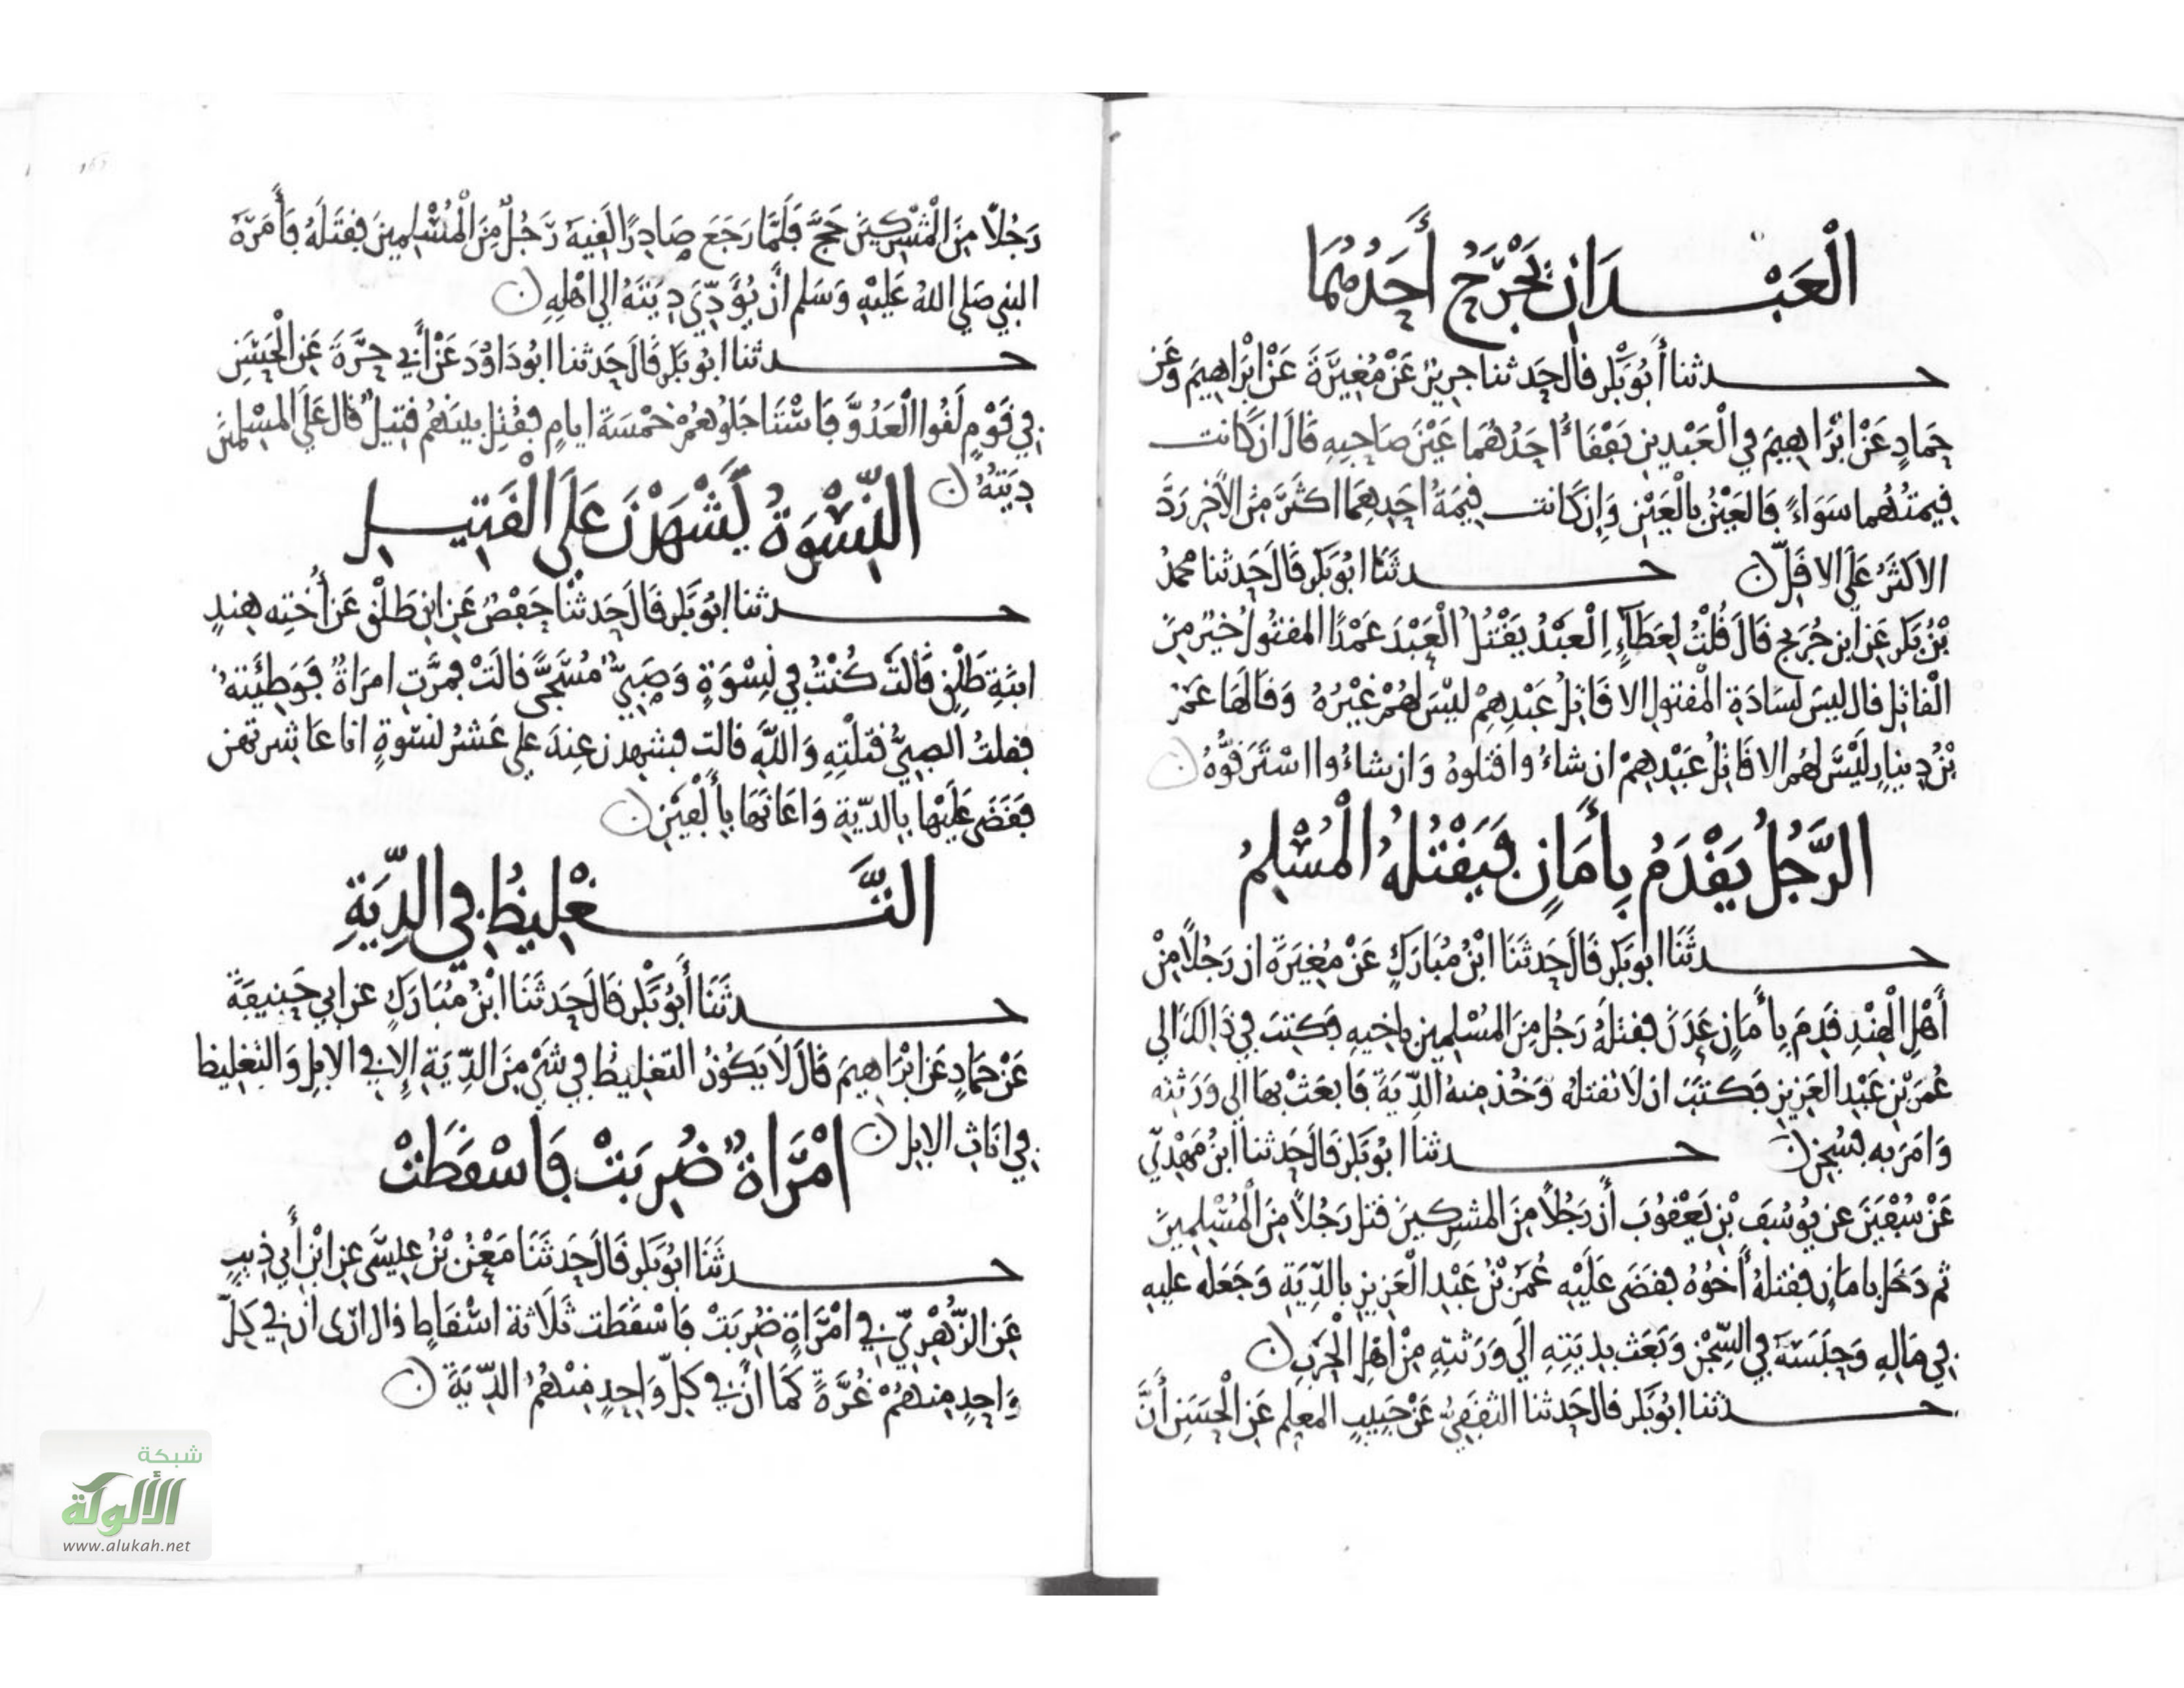 الْعَبْدَانِ يَجْرَحُ أَحَدُهُمَا
حدثنا أَبُو بَكْرٍ قال حَدثنا جرير عَنْ مُغِيرَةَ عَنْ ابْرَاهِيمَ وَعَن
حَمادٍ عَنْ ابْرَاهِيمَ في الْعَبْدين يَفْقَأُ احَدُهُمَا عَيْنَ صَاحِبِهِ قَالَ ان كَانت
قيمتُهُما سَوَاءً فَالعَيْنُ بِالْعَيْنِ وَإِن كَانت قِيمَةُ احَدِهِمَا اكثَرَ مِنَ الاخِرِ رَدَّ
الاكثَرُ عَلَى الاقَلِّ ن حدثَنَا ابُو بَكْرٍ قَالَ حَدثنا محمدُ
بْنُ بَكْرٍ عَنِ ابن جُرَيجٍ قَالَ قُلْتُ لِعَطَآءٍ الْعَبْدُ يَقْتُلُ الْعَبْدَ عَمْدًا المقتُولُ خَيْرٌ مِنَ
الْقاتِلِ قال ليسَ لسَادَةِ الْمقتولِ الا قَاتِلُ عَبْدِهِمْ ليْسَ لهُمْ غَيْرُهُ وَقَالَهَا عَمْرُ
بْنُ دِينارٍ لَيْسَ لهُم الا قَاتِلُ عَبْدِهِمْ ان شاءُوا قتلوهُ وَان شاءُوا اسْتَرَقُّوهُ ن
الرَّجُلُ يَقْدَمُ بِأَمَانٍ فَيَقْتُلُهُ الْمُسْلِمُ
حدثَنَا ابُو بَكْرٍ قَالَ حَدثَنَا ابْنُ مُبَارَكٍ عَنْ مُغِيرَةَ ان رَجُلًا مِنْ
أَهْلِ الْهِنْدِ قَدِمَ بِأَمَانٍ عَدَنَ فقتلَهُ رَجُل مِنَ المُسْلِمين باخيهِ فكتبَ في ذَالكَ الي
عُمَرَ بْنِ عَبْدِ العَزِيزِ فكتَبَ ان لَا تقتله وَخُذ مِنهُ الدِّيَةَ فَابعَثْ بهَا الى وَرَثتِه
وَامَر به فسُجِنَ ن حدثنا ابُو بَكْرٍ قَالَ حَدثنا ابنُ مَهْدِيٍّ
عَنْ سُفْيَنَ عن يُوسُفَ بْنِ يَعْقُوبَ أَن رَجُلًا مِنَ المشرِكينَ قتل رَجُلًا مِنَ الْمُسْلِمِينَ
ثم دَخَل بامان فقتلهُ أَخُوهُ فقَضَى عَلَيْهِ عُمَرُ بْنُ عَبْدِ الْعَزِيزِ بالدِّيَةِ وَجَعَله عليهِ
في مَالِهِ وَحَبَسَهُ في السِّجْنِ وَبَعَث بدِيَتِهِ الَى وَرَثتِهِ مِنْ اهْلِ الْحَرْبِ ن
حدثنا ابُو بَكْرٍ قال حَدثنا الثقفِيُّ عَنْ حَبِيبٍ المعلِم عَنِ الْحَسَنِ أَنَّ
رَجُلًا مِنَ الْمُشْرِكِينَ حَجَّ فَلَمَّا رَجَعَ صَادِرًا لَقِيَهُ رَجُلٌ مِنَ الْمُسْلِمِينَ فقتَلَهُ فَأَمَرَهُ
النبي صَلي اللهُ عَلَيْهِ وَسَلم أَنْ يُؤَدِّيَ دِيَتَهُ الي اهْلِهِ ن
حدثنا ابُو بَكْرٍ قَالَ حَدثنا ابُو دَاوُدَ عَنْ أَبي حرَّةَ عَنِ الْحَسَنِ
في قَوْمٍ لَقُوا الْعَدُوَّ فَاسْتَاجَلُوهُمْ خَمْسَةَ ايامٍ فقُتِلَ بينَهُم قتيلٌ قَالَ عَلَى المسْلِمينَ
دِيَتُهُ ن
النِّسْوَةُ يَشْهَدْنَ عَلَى الْقَتِيلِ
حدثنا ابُو بَكْرٍ قَالَ حَدثنا حَفْصٌ عَنِ ابنِ طَلْقٍ عَنْ أُخْتِه هِندٍ
ابنَةِ طَلْقٍ قَالَتْ كُنْتُ في نِسْوَةٍ وَصَبِيٌّ مُسَجًّى قَالَتْ فمَرَّتِ امرَاةٌ فَوَطِئَتهُ
فقلتُ الصبِيُّ قتَلْتِهِ وَاللَّهِ قالت فشهِدنَ عِندَ علي عَشرُ نسْوةٍ انا عَاشرتهن
فقَضَى عَلَيْها بِالدِّيَةِ وَاعَانَهَا بِأَلْفَيْنِ ن
التَّغْلِيظُ في الدِّيَةِ
حدثَنَا أَبُو بَكْرٍ قَالَ حَدثَنَا ابْنُ مُبَارَكٍ عن ابي حَنيفَةَ
عَنْ حَمادٍ عَنْ ابْرَاهِيمَ قَالَ لَا يَكُونُ التغليظُ في شَيْءٍ مِنَ الدِّيَةِ إِلا في الابِلِ وَالتغلِيظ
في انَاثِ الابِلِ ن
امْرَاةٌ ضُرِبَتْ فَاسْقَطَتْ
حدثَنَا ابُو بَكْرٍ قَالَ حَدثَنَا مَعْنُ بْنُ عِيسَى عَنِ ابْنِ أَبي ذِيبٍ
عَنِ الزُّهْرِيِّ في امْرَاةٍ ضُرِبَتْ فَاسْقَطَت ثَلَاثة اسْقَاطٍ قال ارَى ان في كلِّ
وَاحِدٍ مِنهُمْ غُرَّةً كَمَا أَنَّ في كلِّ وَاحِدٍ مِنْهُمُ الدِّيَةَ ن
شبكة
الألوكة
www.alukah.net